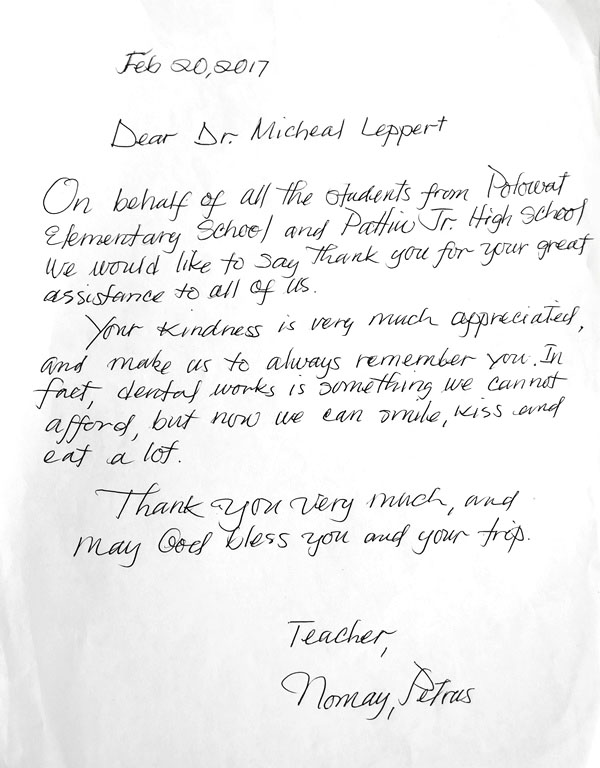 Feb 20, 2017
Dear Dr. Micheal Leppert
On behalf of all the students from Polowat
Elementary School and Pattiw Jr. High School
We would like to say thank you for your great
assistance to all of us.
Your kindness is very much appreciated,
and make us to always remember you. In
fact, dental works is something we cannot
afford, but now we can smile, kiss and
eat a lot.
Thank you very much, and
may God bless you and your trip.
Teacher,
Nomay, Petrus